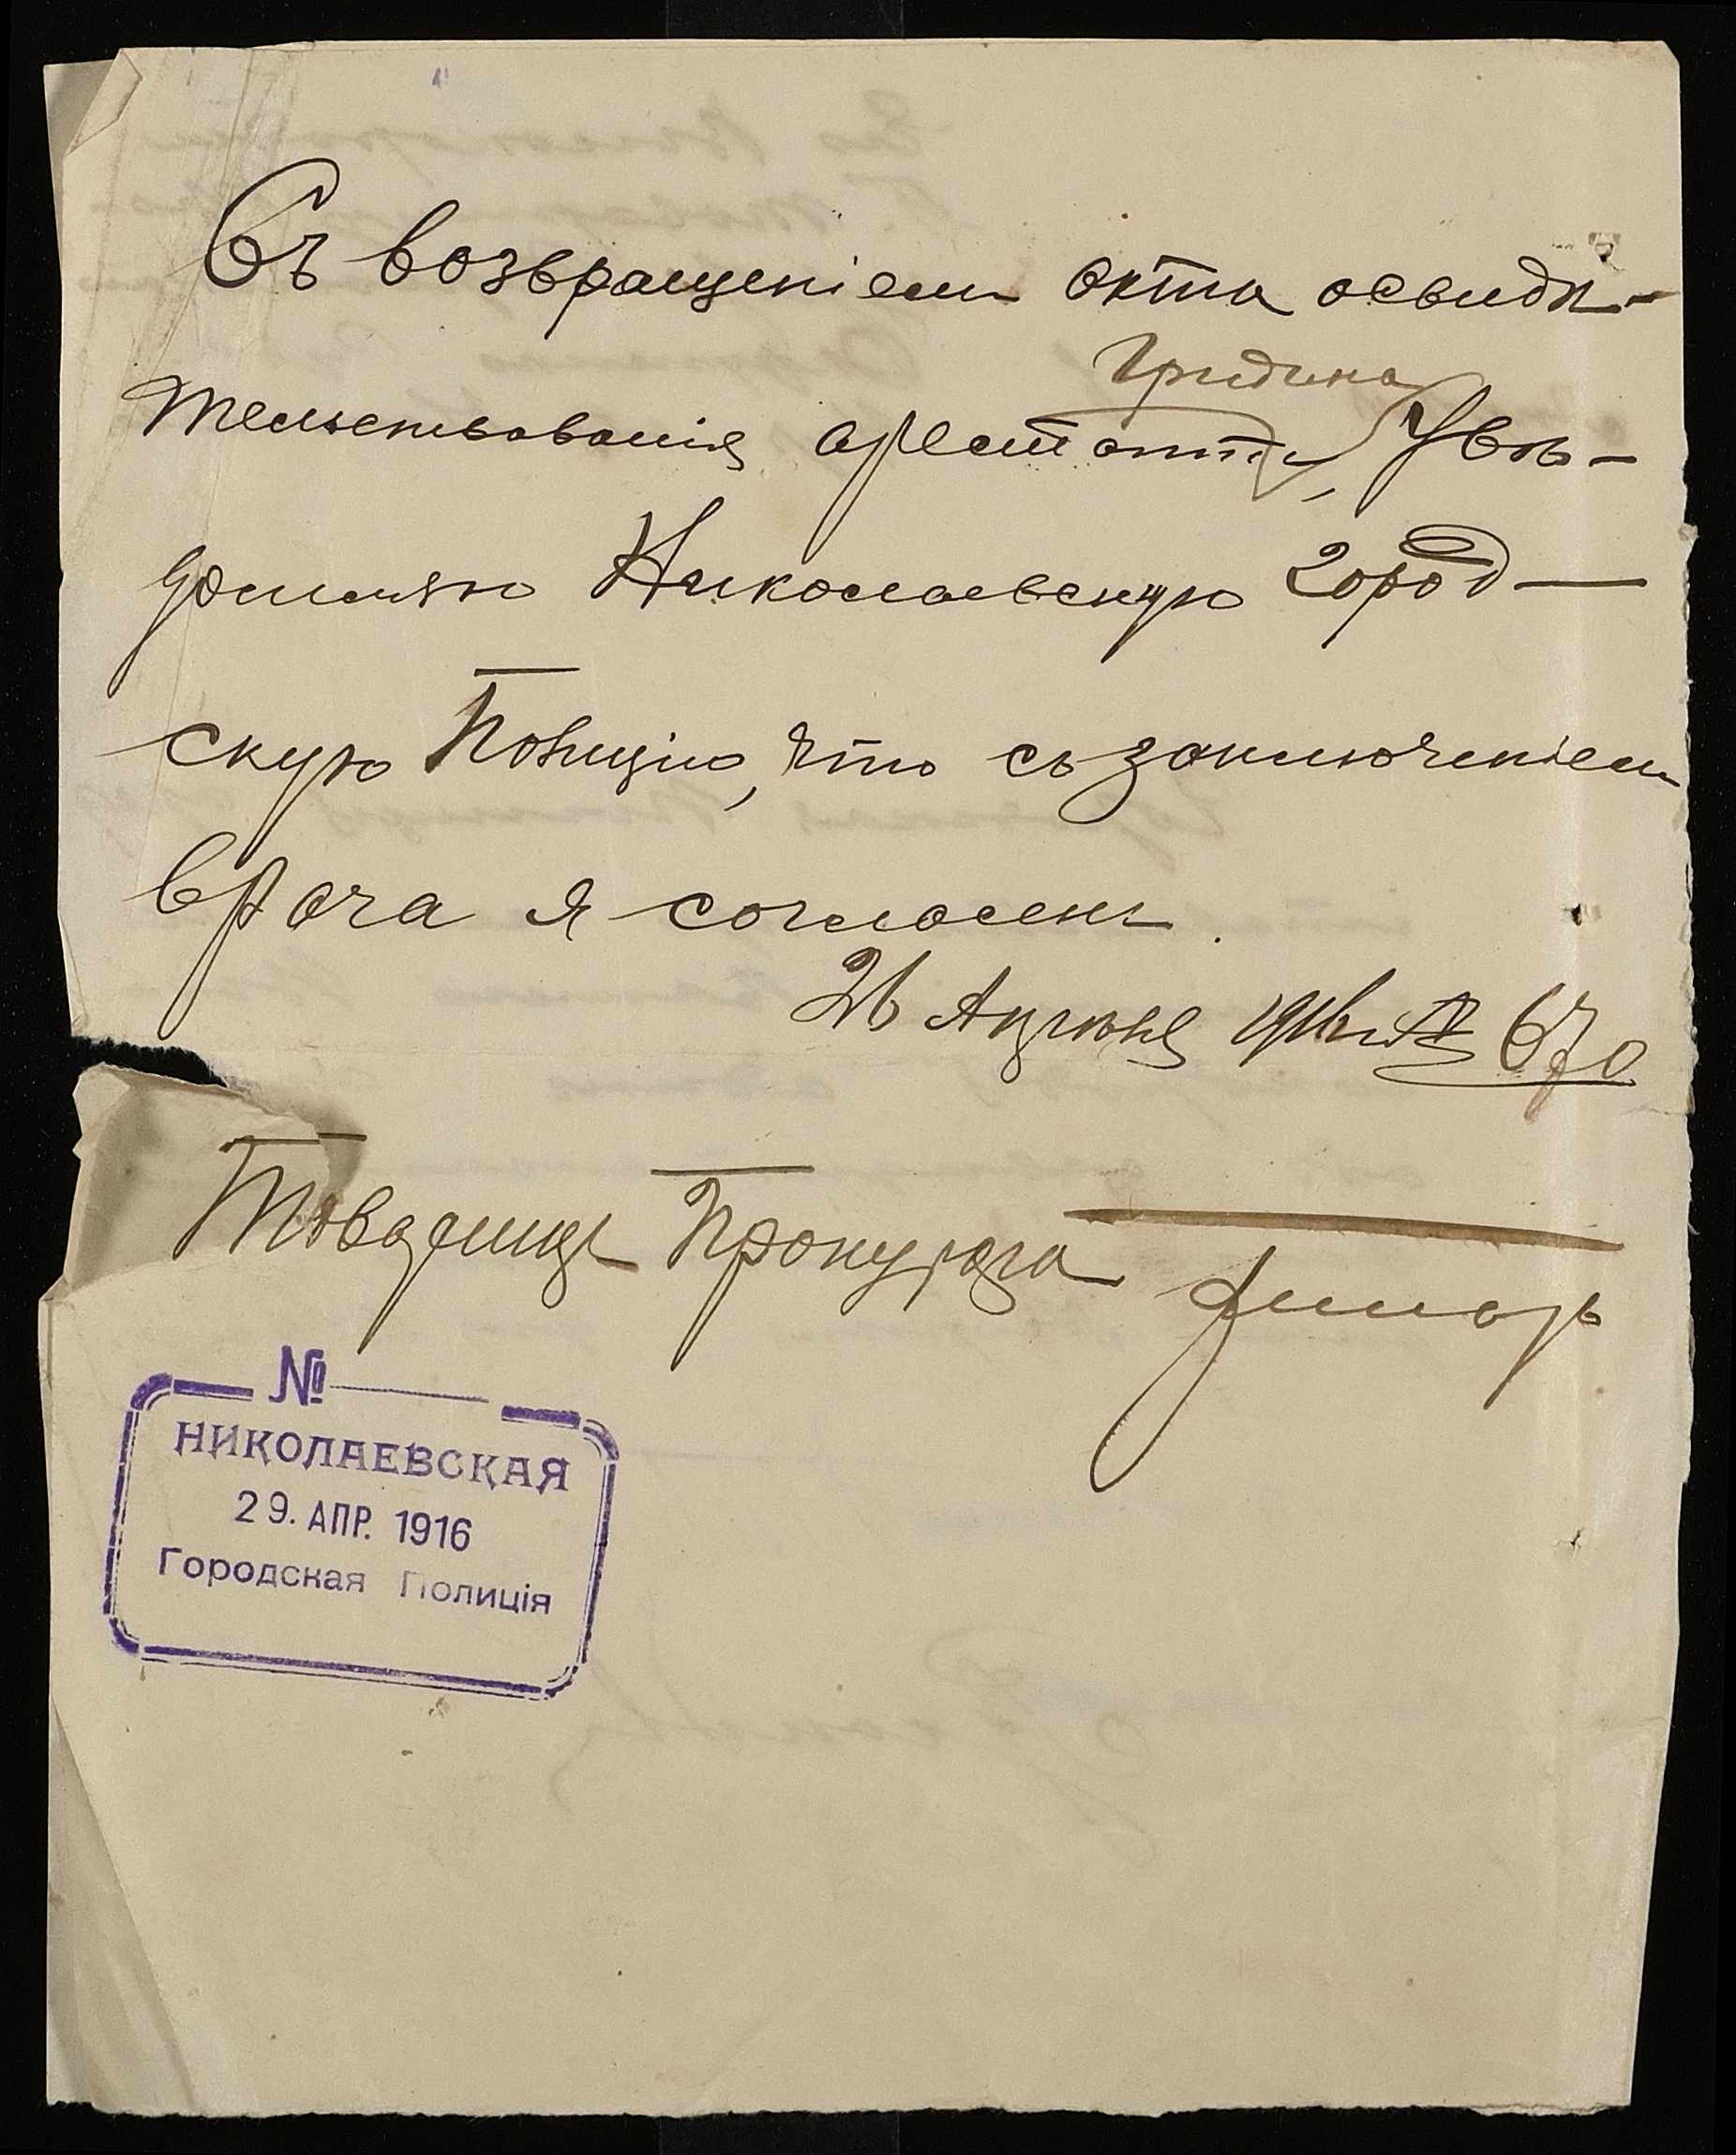 Съ возвращеніемъ акта освидѣ-
Гридина
тельствованія арестанта, Увѣ-
домляю Николаевскую Город-
скую Полицію, что съ заключеніем
врача я согласенъ.
26 Апрѣля 1916 г. № 670
Товарищъ Прокурора
№
НИКОЛАЕВСКАЯ
29. АПР. 1916
Городская Полиція